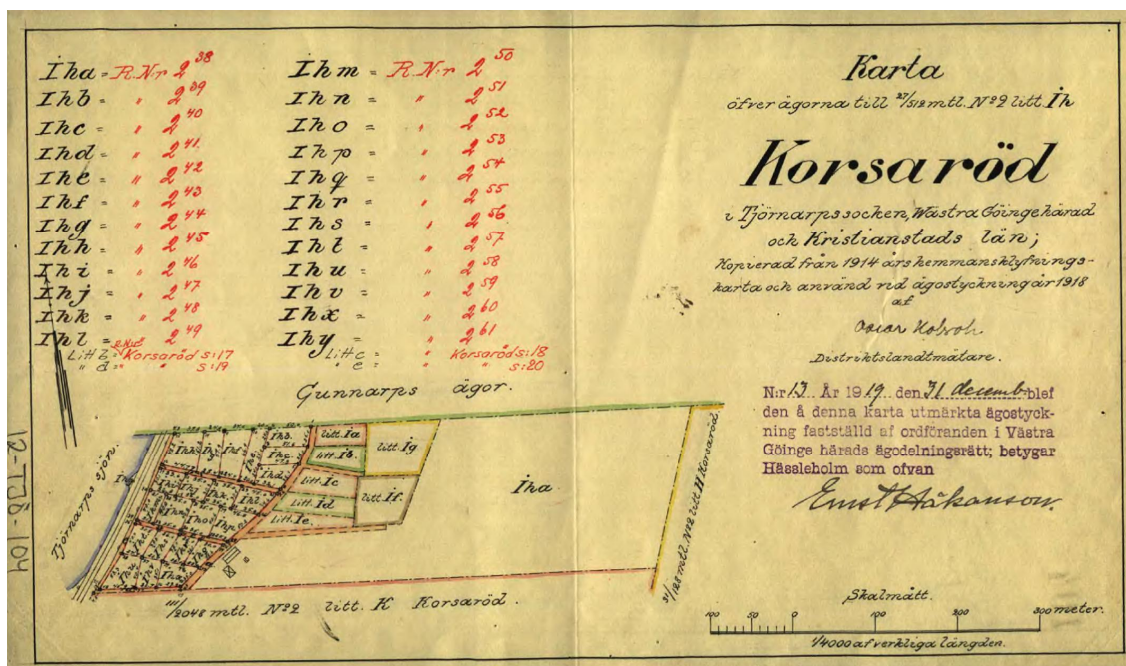 Iha = R.Nr 2³⁸
Ihb = " 2³⁹
Ihc = " 2⁴⁰
Ihd = " 2⁴¹
Ihe = " 2⁴²
Ihf = " 2⁴³
Ihg = " 2⁴⁴
Ihh = " 2⁴⁵
Ihi = " 2⁴⁶
Ihj = " 2⁴⁷
Ihk = " 2⁴⁸
Ihl = " 2⁴⁹
Korsaröd s:17
" d = " " s:19
Ihm = R.Nr 2⁵⁰
Ihn = " 2⁵¹
Iho = " 2⁵²
Ihp = " 2⁵³
Ihq = " 2⁵⁴
Ihr = " 2⁵⁵
Ihs = " 2⁵⁶
Iht = " 2⁵⁷
Ihu = " 2⁵⁸
Ihv = " 2⁵⁹
Ihx = " 2⁶⁰
Ihy = " 2⁶¹
Litt c = " Korsaröd s:18
" e = " " s:20
Karta
öfver ägorna till 27/512 mtl. Nº 2 litt. Ih
Korsaröd
i Tjörnarps socken, Wästra Göinge härad
och Kristianstads län;
Kopierad från 1914 års hemmansklyfnings-
karta och använd vid ägostyckning år 1918
af
Oscar
Distriktslandtmätare.
N:r 13 År 1919 den 31 decemb. blef
den å denna karta utmärkta ägostyck-
ning fastställd af ordföranden i Västra
Göinge härads ägodelningsrätt; betygar
Hässleholm som ofvan
Ernst Håkanson.
Gunnarps ägor.
Tjörnarps sjön.
litt. Ia
litt. Ib
litt. Ic
litt. Id
litt. Ie
litt. If
litt. Ig
Iha
Ihb
Ihc
Ihd
Iho
Ihp
litt H Korsaröd
111/2048 mtl. Nº 2 litt. K Korsaröd.
12-TJB-104
Skalmått.
100 50 0 100 200 300 meter.
1/4000 af verkliga längden.